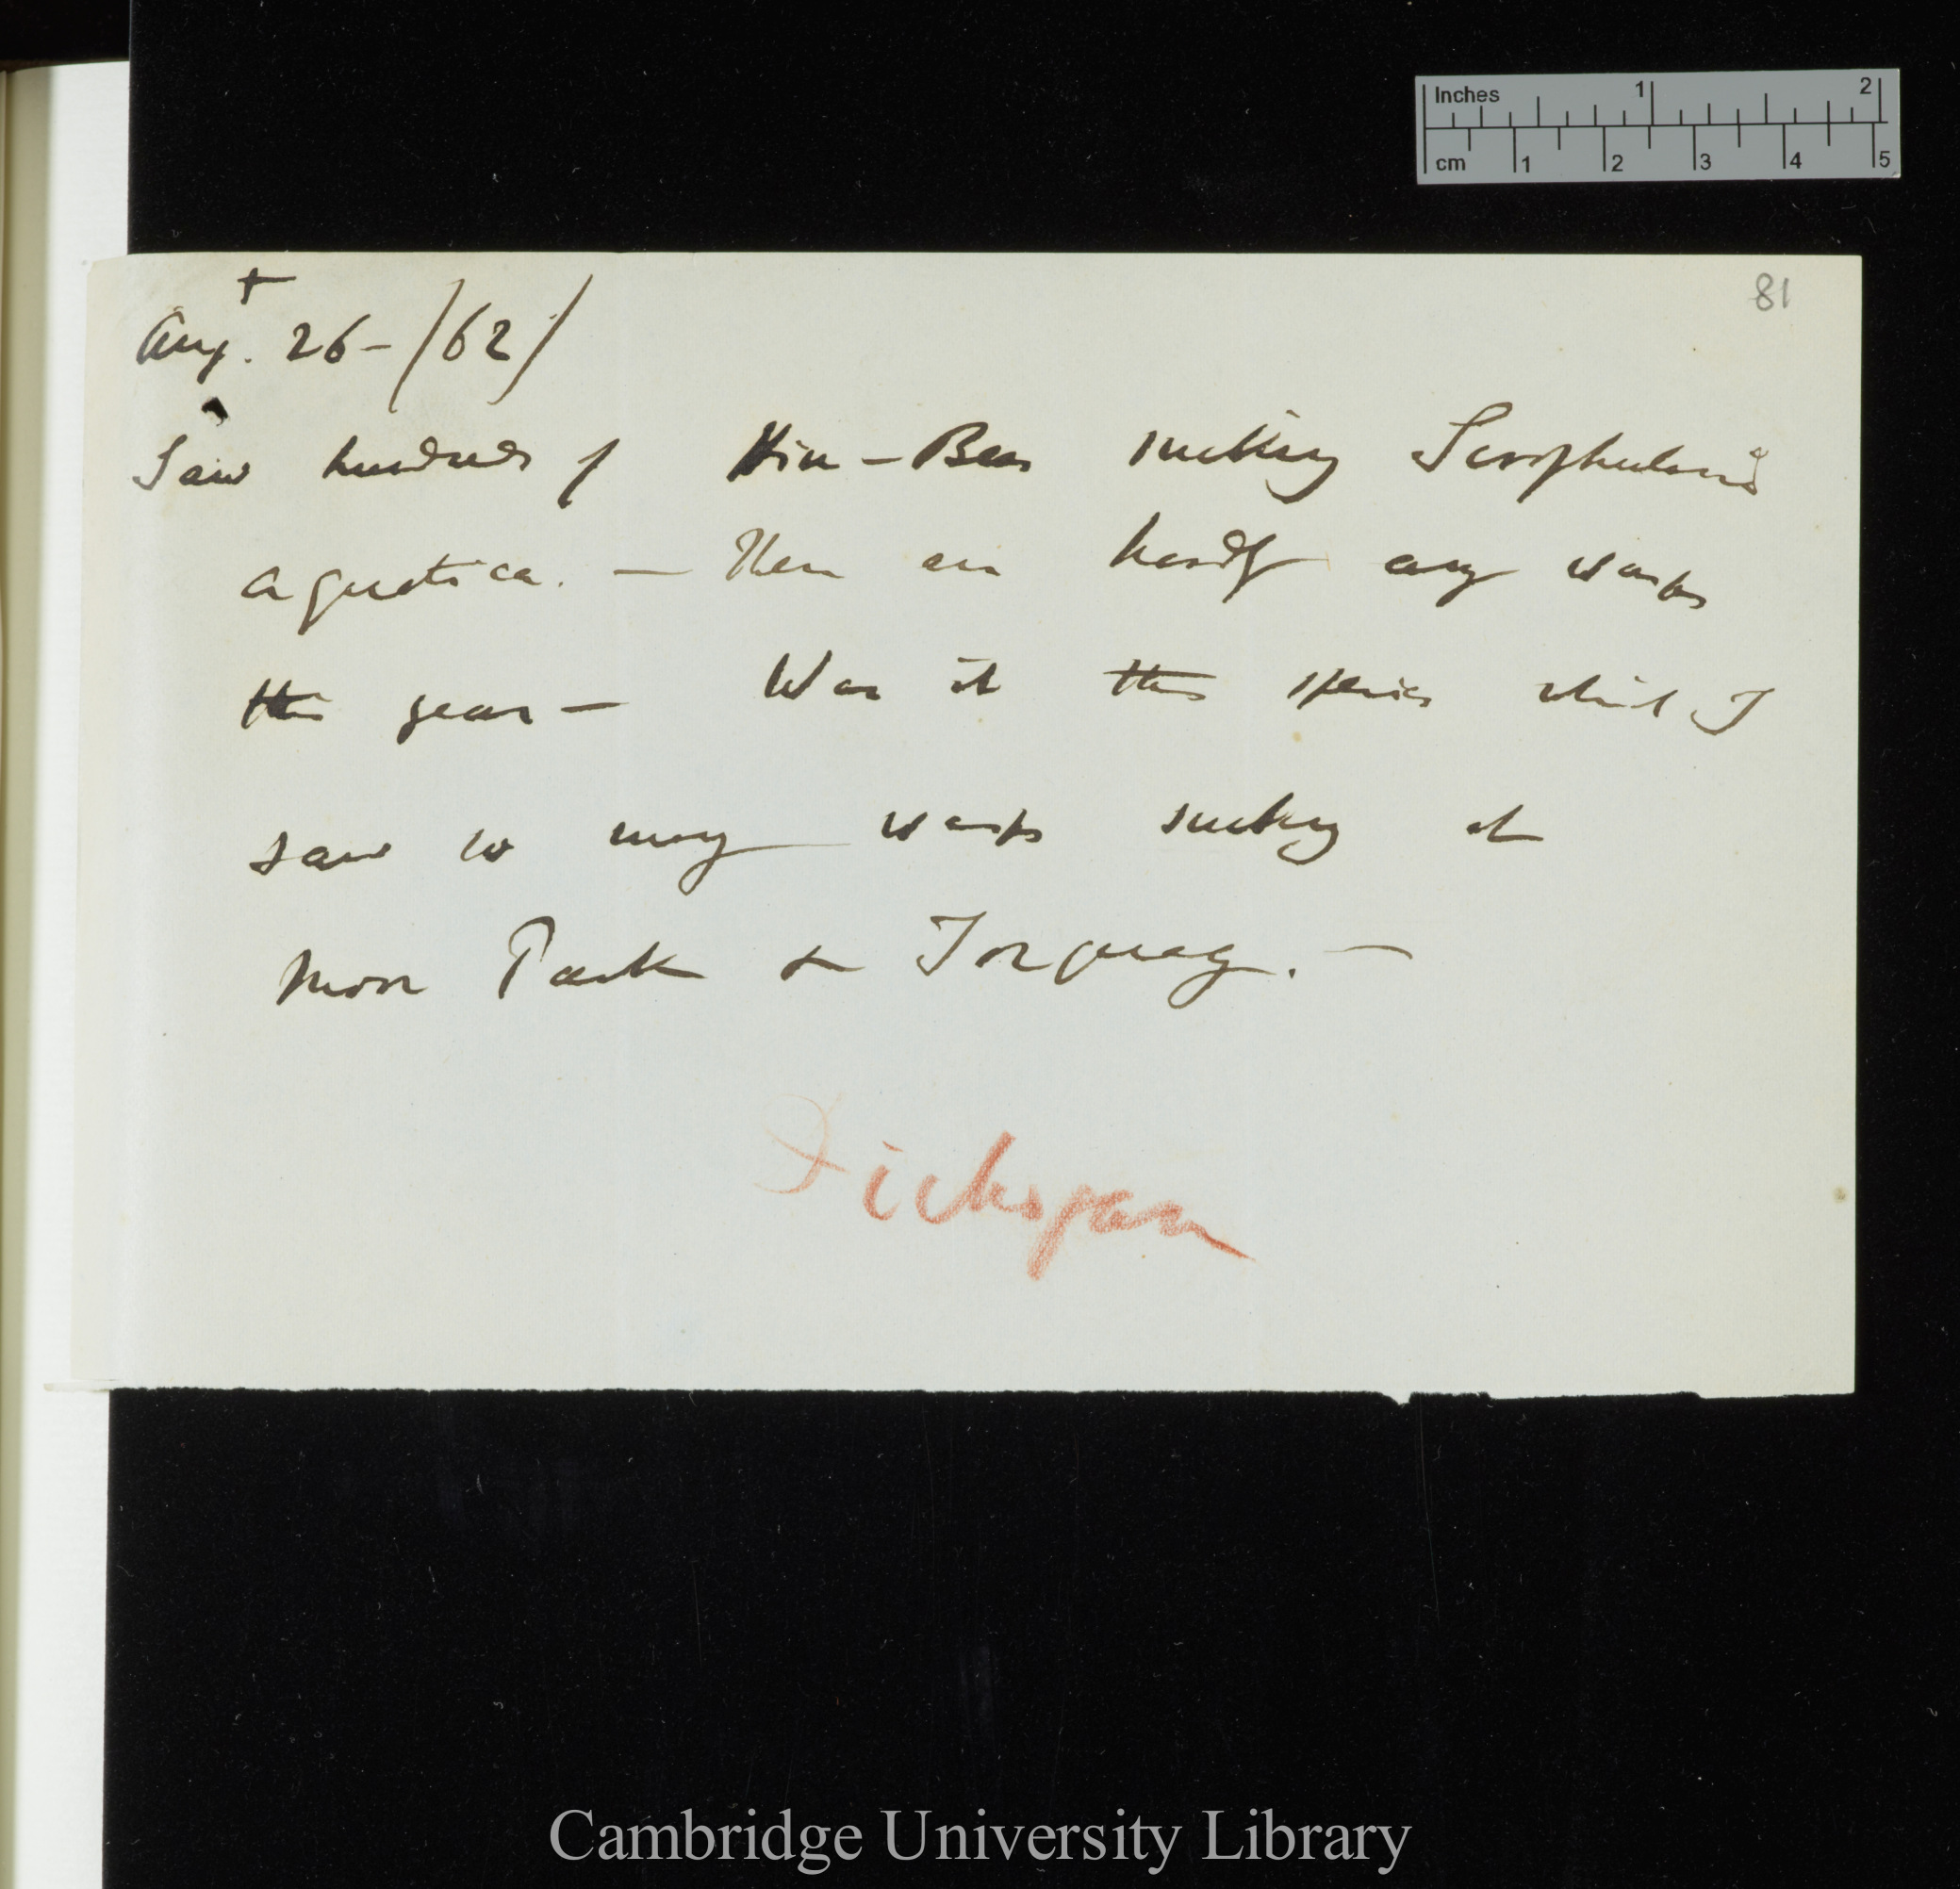 Inches 1 2
cm 1 2 3 4 5
81
Aug. 26 - /62/
Saw hundreds of Hive-Bees sucking Scrophularia
aquatica. — There are hardly any wasps
this year — Was it this species which I
saw so many wasps sucking at
Moor Park & Torquay. —
Dichogam
Cambridge University Library